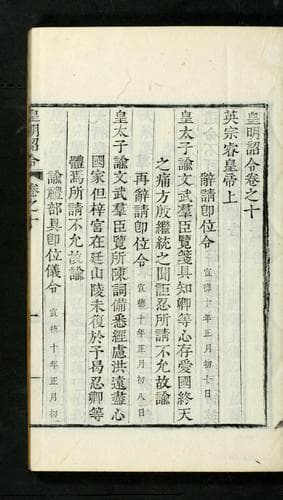 皇明詔令卷之十
英宗睿皇帝上
辭請卽位令 宣德十年正月初七日
皇太子諭文武羣臣覽箋具知卿等心存愛國終天
之痛方殷繼統之聞詎忍所請不允故諭
再辭請卽位令 宣德十年正月初八日
皇太子諭文武羣臣覽所陳詞備悉經慮洪遠盡心
國家但梓宮在廷山陵未復於予曷忍卿等
體焉所請不允故諭
諭禮部具卽位儀令 宣德十年正月初
皇明詔令 卷之十 一